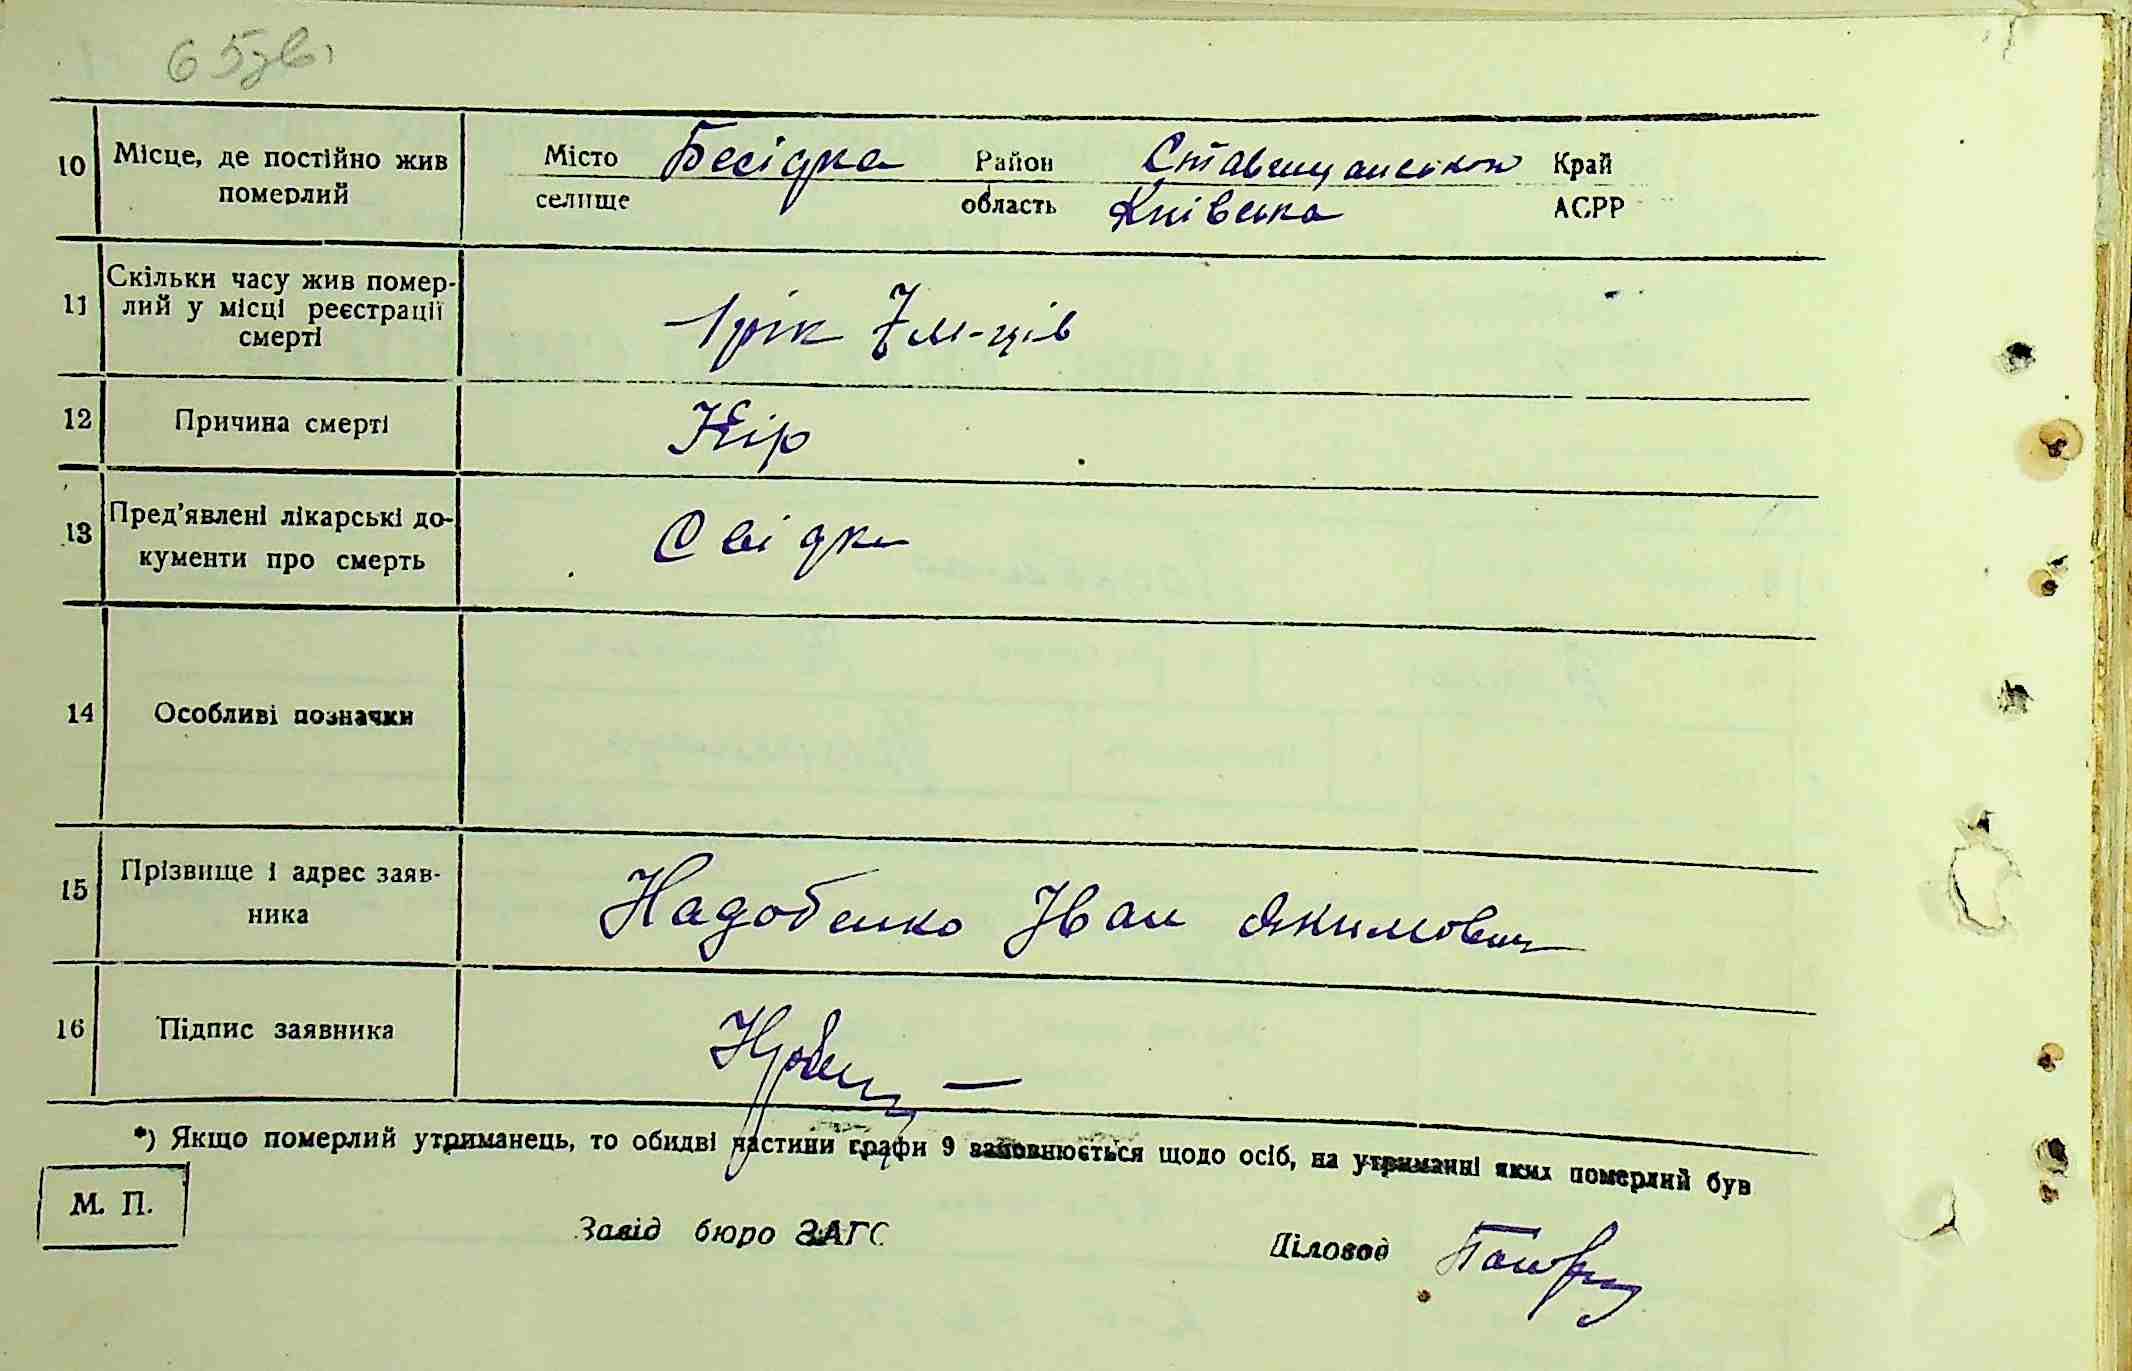 65зв.
10 Місце, де постійно жив Місто Бесідка Район Ставищанськ Край
померлий селище область Київська АСРР
11 Скільки часу жив помер-
лий у місці реєстрації 1 рік 7 м-ців
смерті
12 Причина смерті Кір
13 Пред'явлені лікарські до- Свідки
кументи про смерть
14 Особливі позначки
15 Прізвище і адрес заяв- Надобенко Іван Якимович
ника
16 Підпис заявника
*) Якщо померлий утриманець, то обидві частини графи 9 заповнюється щодо осіб, на утриманні яких померлий був
М. П.
Завід бюро ЗАГС Діловод